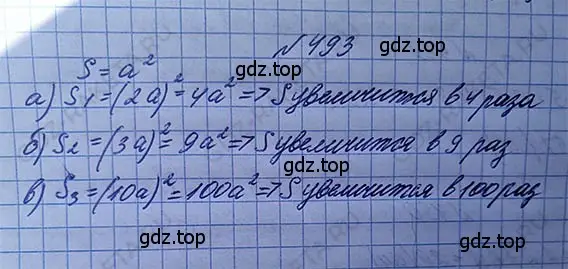 № 493
S = a²
а) S₁ = (2a)² = 4a² => S увеличится в 4 раза
gdz.top
б) S₂ = (3a)² = 9a² => S увеличится в 9 раз
gdz.top
в) S₃ = (10a)² = 100a² => S увеличится в 100 раз
gdz.top
gdz.top